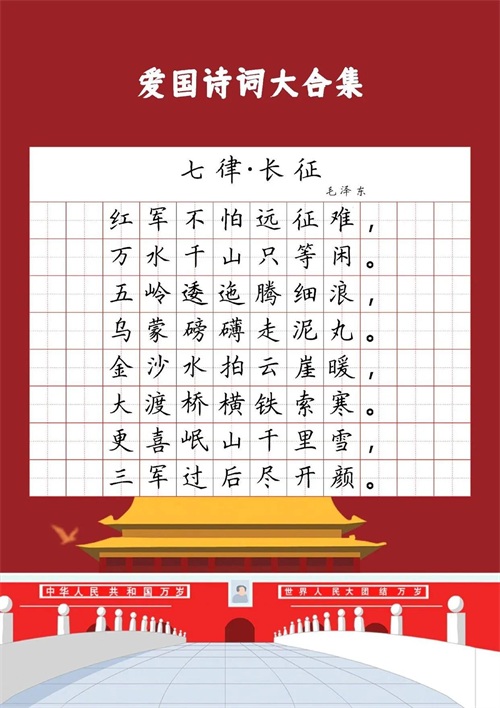 爱国诗词大合集
七律·长征
毛泽东
红军不怕远征难，
万水千山只等闲。
五岭逶迤腾细浪，
乌蒙磅礴走泥丸。
金沙水拍云崖暖，
大渡桥横铁索寒。
更喜岷山千里雪，
三军过后尽开颜。
中华人民共和国万岁
世界人民大团结万岁